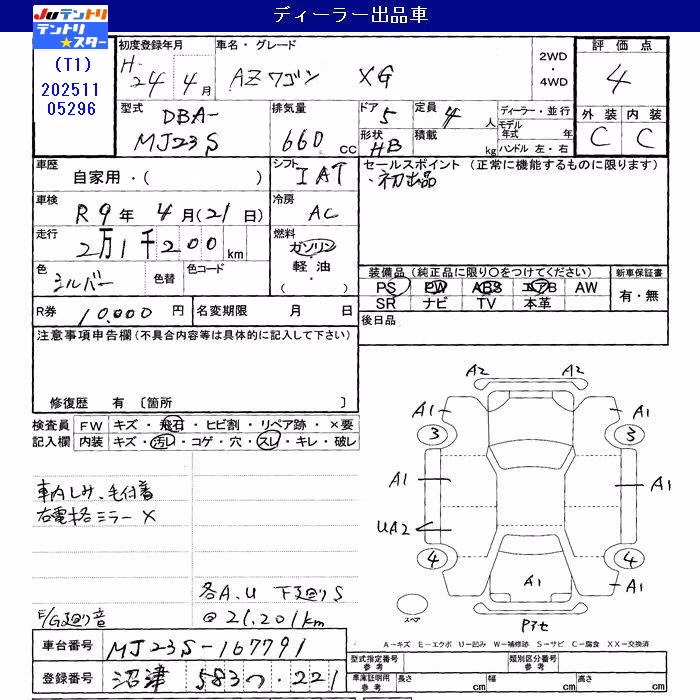 ディーラー出品車
JU テントリ
テントリ★スター
(T1)
202511
05296
初度登録年月 車名・グレード 2WD・4WD 評価点
H-24年 4月 AZワゴン XG 4
型式 DBA-MJ23S 排気量 660cc ドア 5 形状 HB 定員 4人 積載 kg ディーラー・並行 モデル年式 年 ハンドル 左・右 外装 C 内装 C
車歴 自家用・( ) シフト IAT セールスポイント (正常に機能するものに限ります)
・初出品
車検 R9年 4月(21日) 冷房 AC
走行 2万1千200km 燃料 ガソリン・軽油・( )
色 シルバー 色替 色コード
装備品(純正品に限り○をつけてください) 新車保証書
PS PW ABS エアB AW 有・無
SR ナビ TV 本革
R券 10,000円 名変期限 月 日 後日品
注意事項申告欄(不具合内容等は具体的に記入して下さい)
修復歴 有 〔箇所 〕
検査員 FW キズ・飛石・ヒビ割・リペア跡・×要
記入欄 内装 キズ・汚レ・コゲ・穴・スレ・キレ・破レ
車内しみ、毛付着
右電格ミラー×
各A、U 下廻りS
E/G廻り音 @21,201km
A2 A2
A1 A1
3 3
A1 A1
UA2
4 4
A1 A1
スペア
Pアセ
A-キズ E-エクボ U-凹み W-補修跡 S-サビ C-腐食 XX-交換済
車台番号 MJ23S-167791
型式指定番号 参考 類別区分番号 参考
登録番号 沼津 583つ・221
車庫証明用 参考 長さ cm 幅 cm 高さ cm